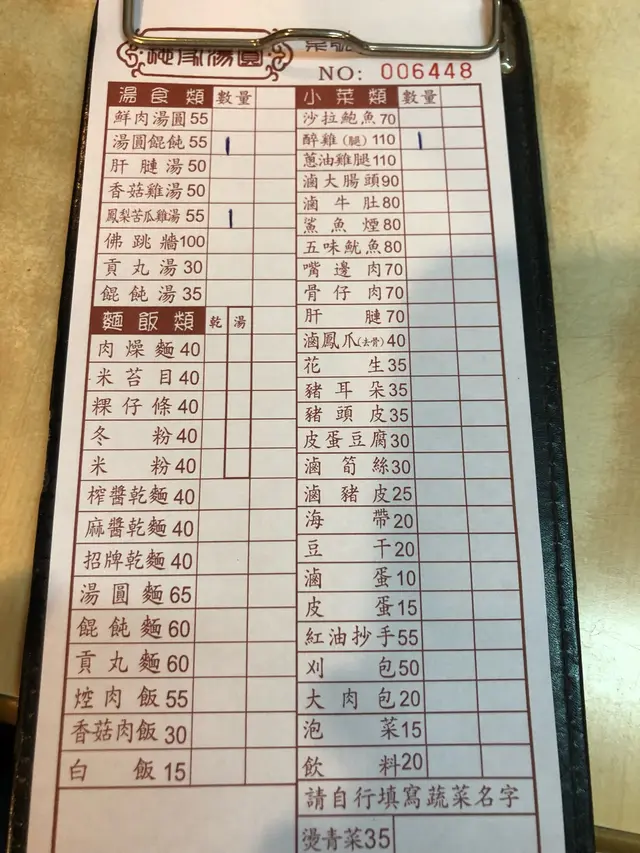 湯圓
NO: 006448
湯食類 數量
鮮肉湯圓 55
湯圓餛飩 55
肝腱湯 50
香菇雞湯 50
鳳梨苦瓜雞湯 55
佛跳牆 100
貢丸湯 30
餛飩湯 35
麵飯類 乾 湯
肉燥麵 40
米苔目 40
粿仔條 40
冬粉 40
米粉 40
榨醬乾麵 40
麻醬乾麵 40
招牌乾麵 40
湯圓麵 65
餛飩麵 60
貢丸麵 60
焢肉飯 55
香菇肉飯 30
白飯 15
小菜類 數量
沙拉鮑魚 70
醉雞(腿) 110
蔥油雞腿 110
滷大腸頭 90
滷牛肚 80
鯊魚煙 80
五味魷魚 80
嘴邊肉 70
骨仔肉 70
肝腱 70
滷鳳爪(去骨) 40
花生 35
豬耳朵 35
豬頭皮 35
皮蛋豆腐 30
滷筍絲 30
滷豬皮 25
海帶 20
豆干 20
滷蛋 10
皮蛋 15
紅油抄手 55
刈包 50
大肉包 20
泡菜 15
飲料 20
請自行填寫蔬菜名字
燙青菜 35